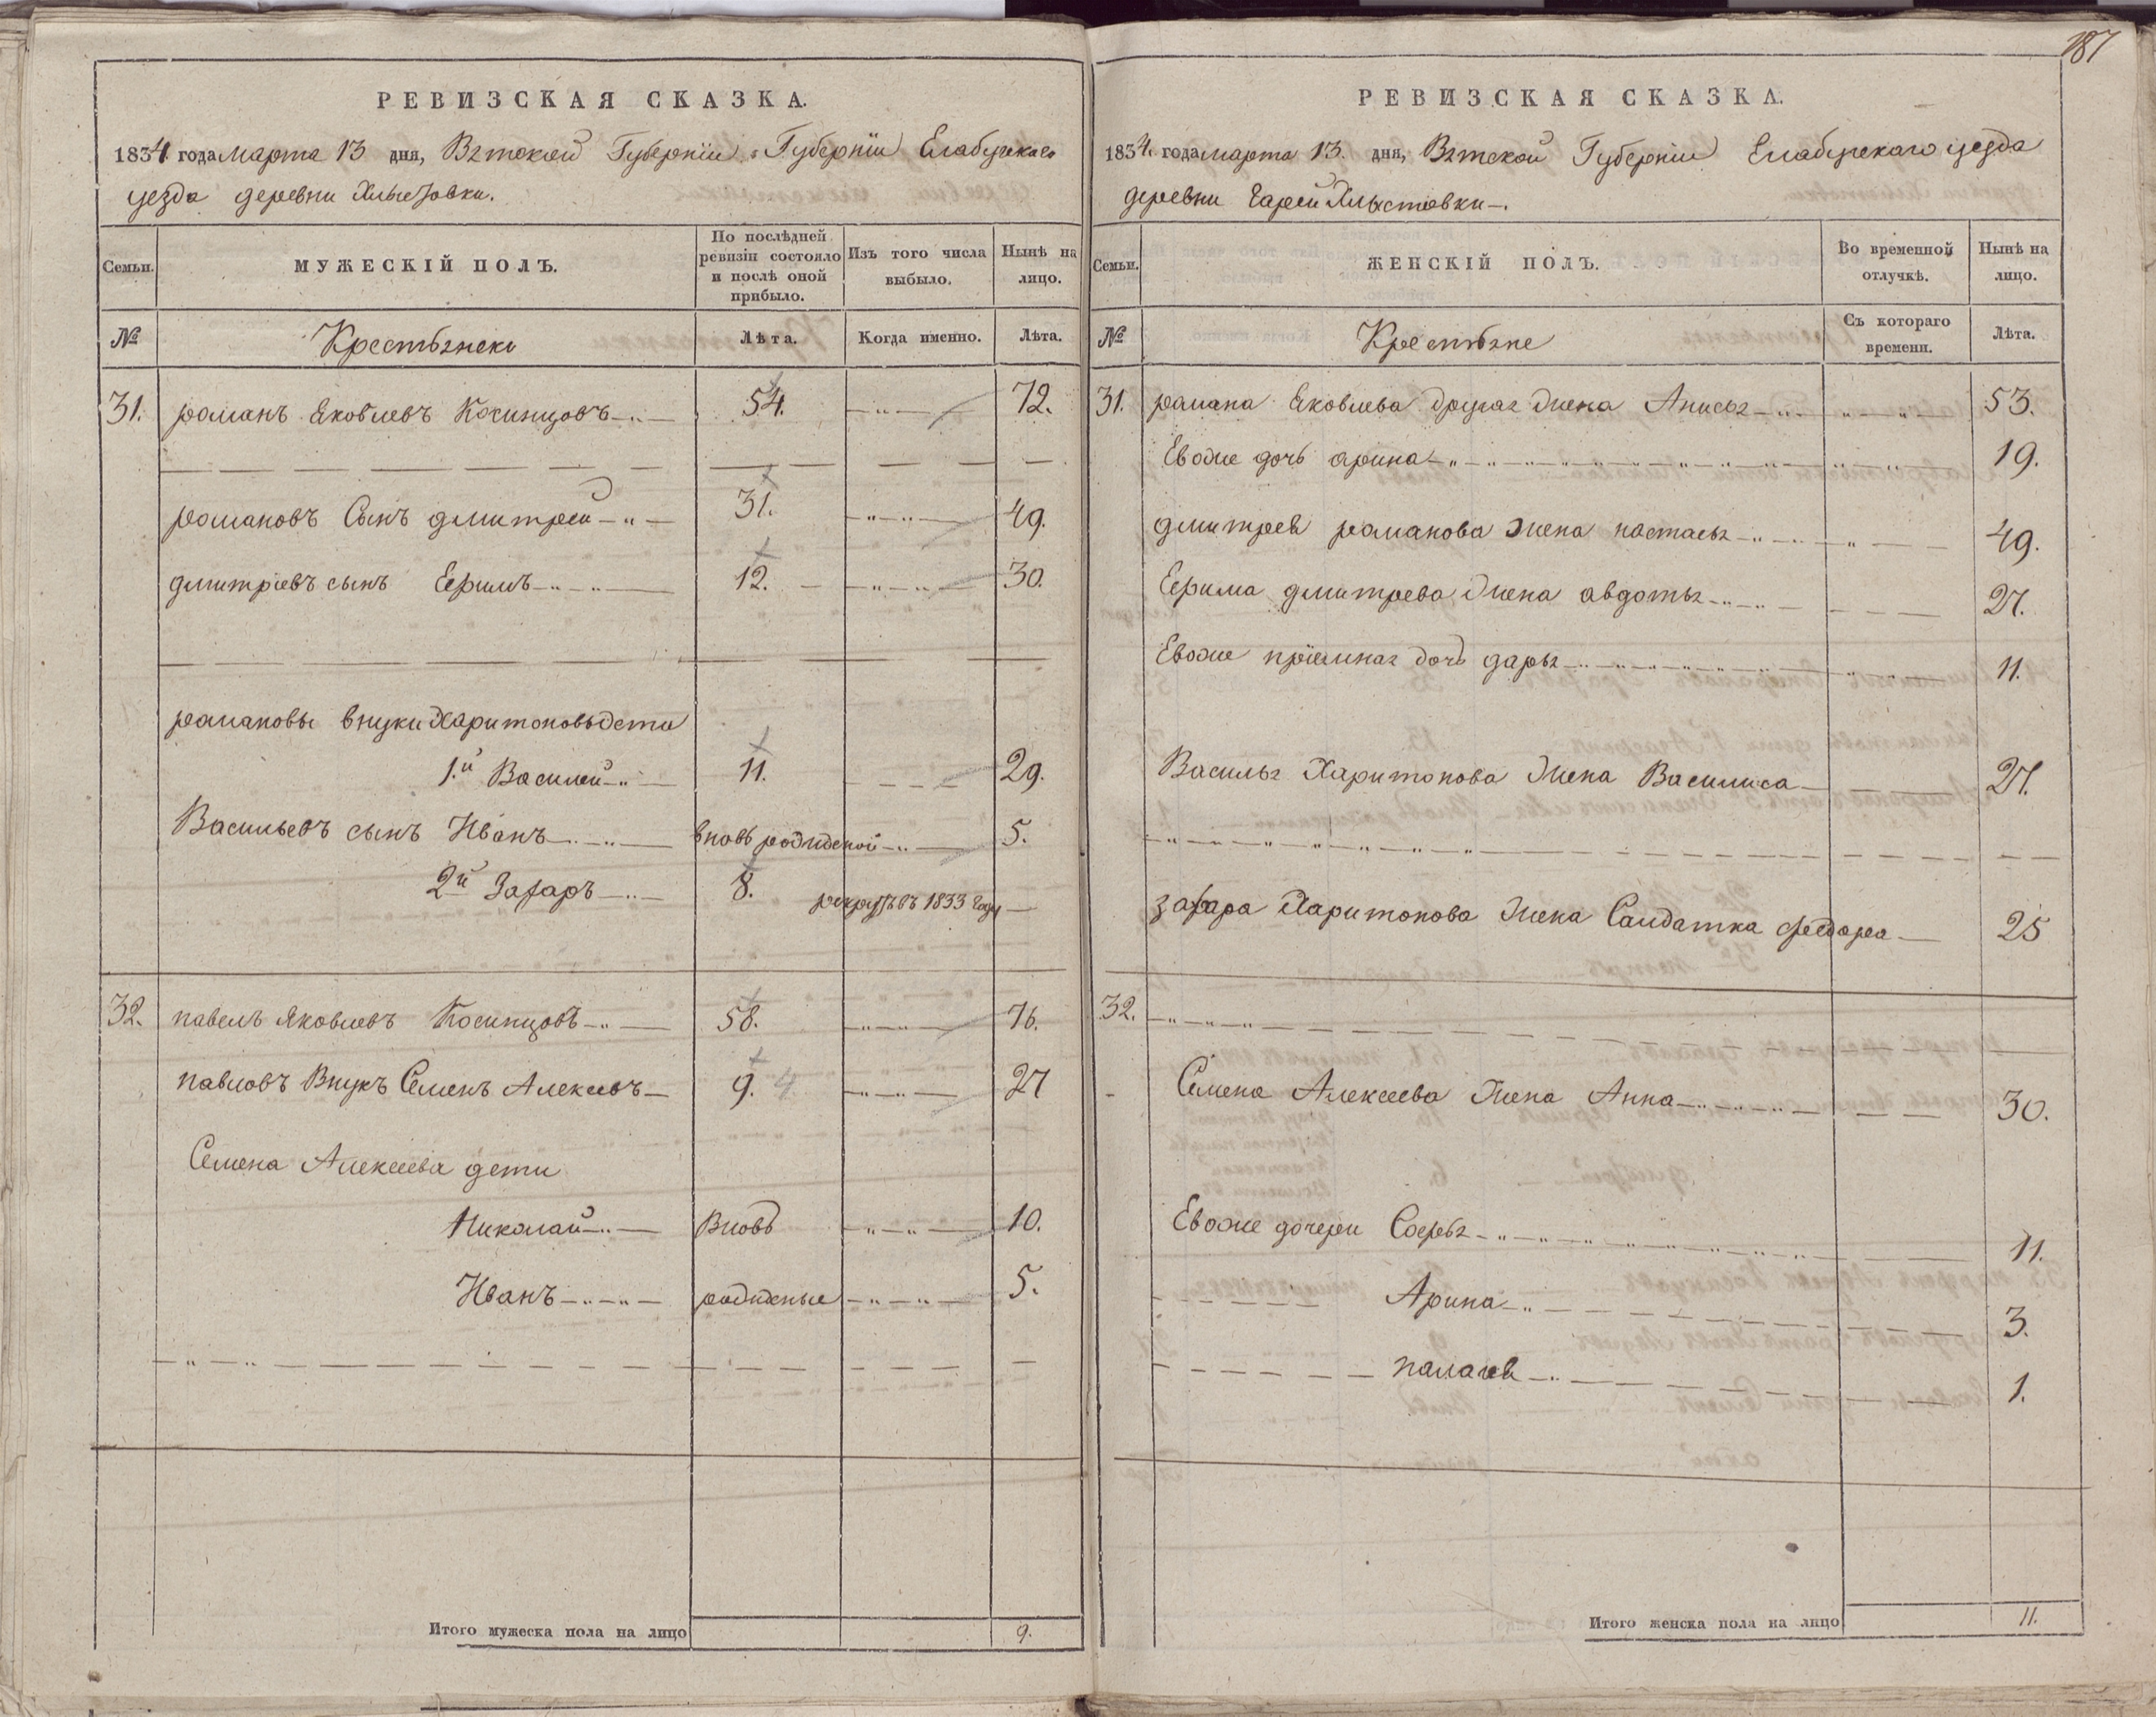 187
РЕВИЗСКАЯ СКАЗКА.
1834 года марта 13 дня, Вятской Губернїи Губернїи Елабужскаго
уезда деревни Хлыстовки.
Семьи. МУЖЕСКІЙ ПОЛЪ. По послѣдней ревизіи состояло и послѣ оной прибыло. Изъ того числа выбыло. Нынѣ на лицо.
№ Лѣта. Когда именно. Лѣта.
31. романъ Яковлевъ Косинцовъ 54. 72.
романовъ Сынъ дмитрей 31. 49.
дмитріевъ сынъ Ефимъ 12. 30.
романовы внуки Харитоновы дети
1.й Василей 11. 29.
Васильевъ сынъ Иванъ вновь рожденой 5.
2й Захаръ 8. рекрутъ въ 1833 году
32. павелъ Яковлевъ Косинцовъ 58. 76.
павловъ Внукъ Семенъ Алексеевъ 9. 4 27
Семена Алексеева дети
Николай Вновь 10.
Иванъ рожденые 5.
Итого мужеска пола на лицо 9.
РЕВИЗСКАЯ СКАЗКА.
1834 года марта 13. дня, Вятской Губернїи Елабужскаго уезда
деревни Хлыстовки.
Семьи. ЖЕНСКІЙ ПОЛЪ. Во временной отлучкѣ. Нынѣ на лицо.
№ Съ котораго времени. Лѣта.
31. романа Яковлева другая жена Анисья 53.
Евоже дочь арина 19.
дмитрея романова жена настасья 49.
Ефима дмитрева жена авдотья 27.
Евоже прїемная дочь дарья 11.
Василья Харитонова жена Василиса 27.
захара Харитонова жена Салдатка федора 25
32.
Семена Алексеева жена Анна 30.
Евоже дочери Софья 11.
Арина 3.
палагея 1.
Итого женска пола на лицо 11.